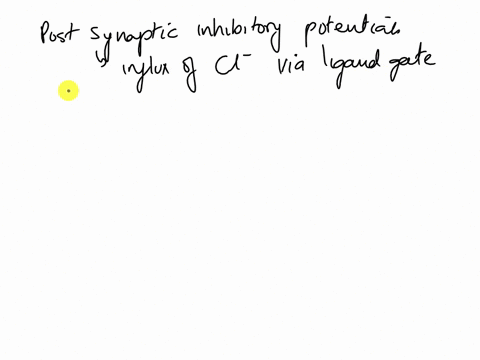 Post synaptic inhibitory potentials
↳ influx of Cl⁻ via ligand gate